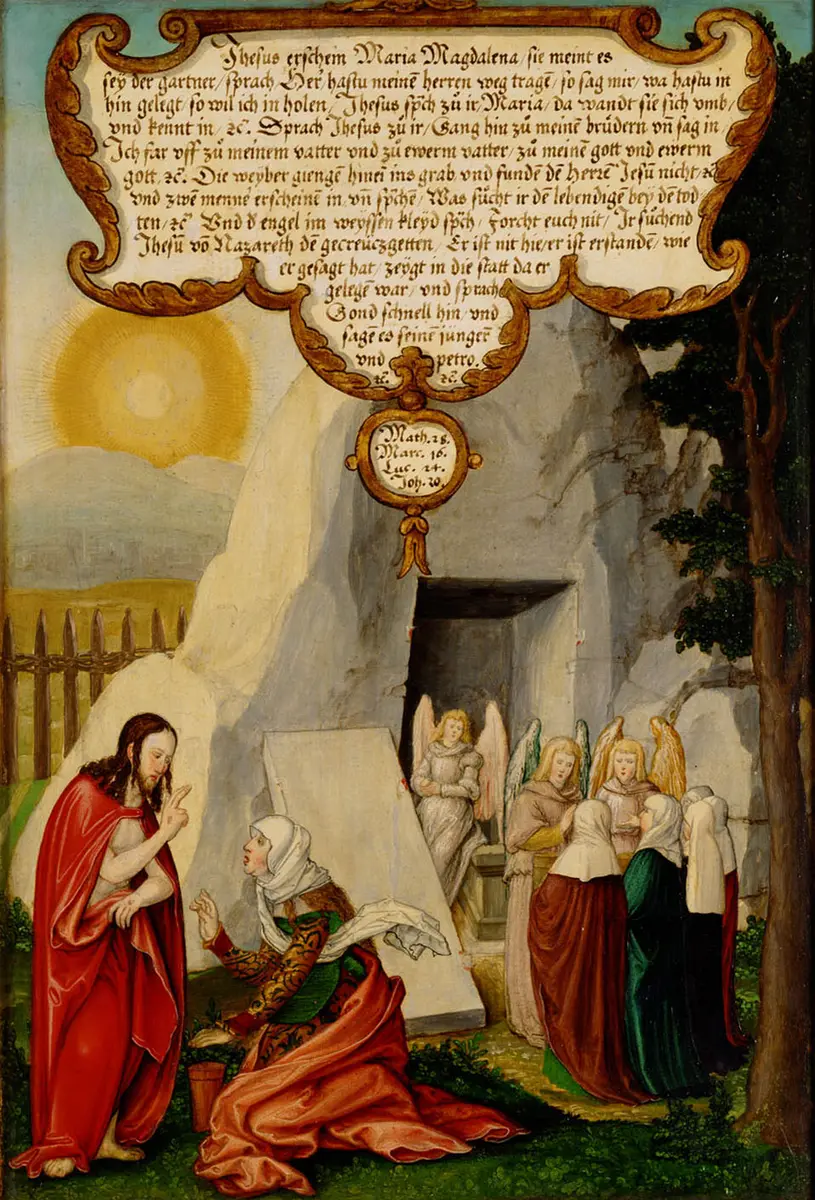 Jhesus erschein Maria Magdalena / sie meint es
sey der gartner / sprach Her hastu meinē herren weg tragē / so sag mir / wa hastu in
hin gelegt / so wil ich in holen / Jhesus sp̄ch zů ir / Maria / da wandt sie sich vmb /
vnd kennt in / ⁊c̄. Sprach Jhesus zů ir / Gang hin zů meinē brůdern vn̄ sag in /
Ich far vff zů meinem vatter vnd zů ewerm vatter / zů meinē gott vnd ewerm
gott. ⁊c̄. Die weyber giengē hinei͂ ins grab vnd fundē dē Herrē Jesū nicht / ⁊c̄
vnd zwē mennē erscheinē in vn̄ sp̄chē / Was sůcht ir dē lebendigē bey dē tod
ten / ⁊c̄ Vnd d̄ engel im weyssen kleyd sp̄ch / Forcht euch nit / Ir sůchend
Jhesū vō Nazareth dē gecreüczgetten / Er ist nit hie / er ist erstandē / wie
er gesagt hat / zeygt in die statt da er
gelegē war / vnd sprach
Gond schnell hin / vnd
sagē es seinē jüngerē
vnd petro.
⁊c̄. ⁊c̄.
Math. 28.
Marc. 16.
Luc. 24.
Joh. 20.